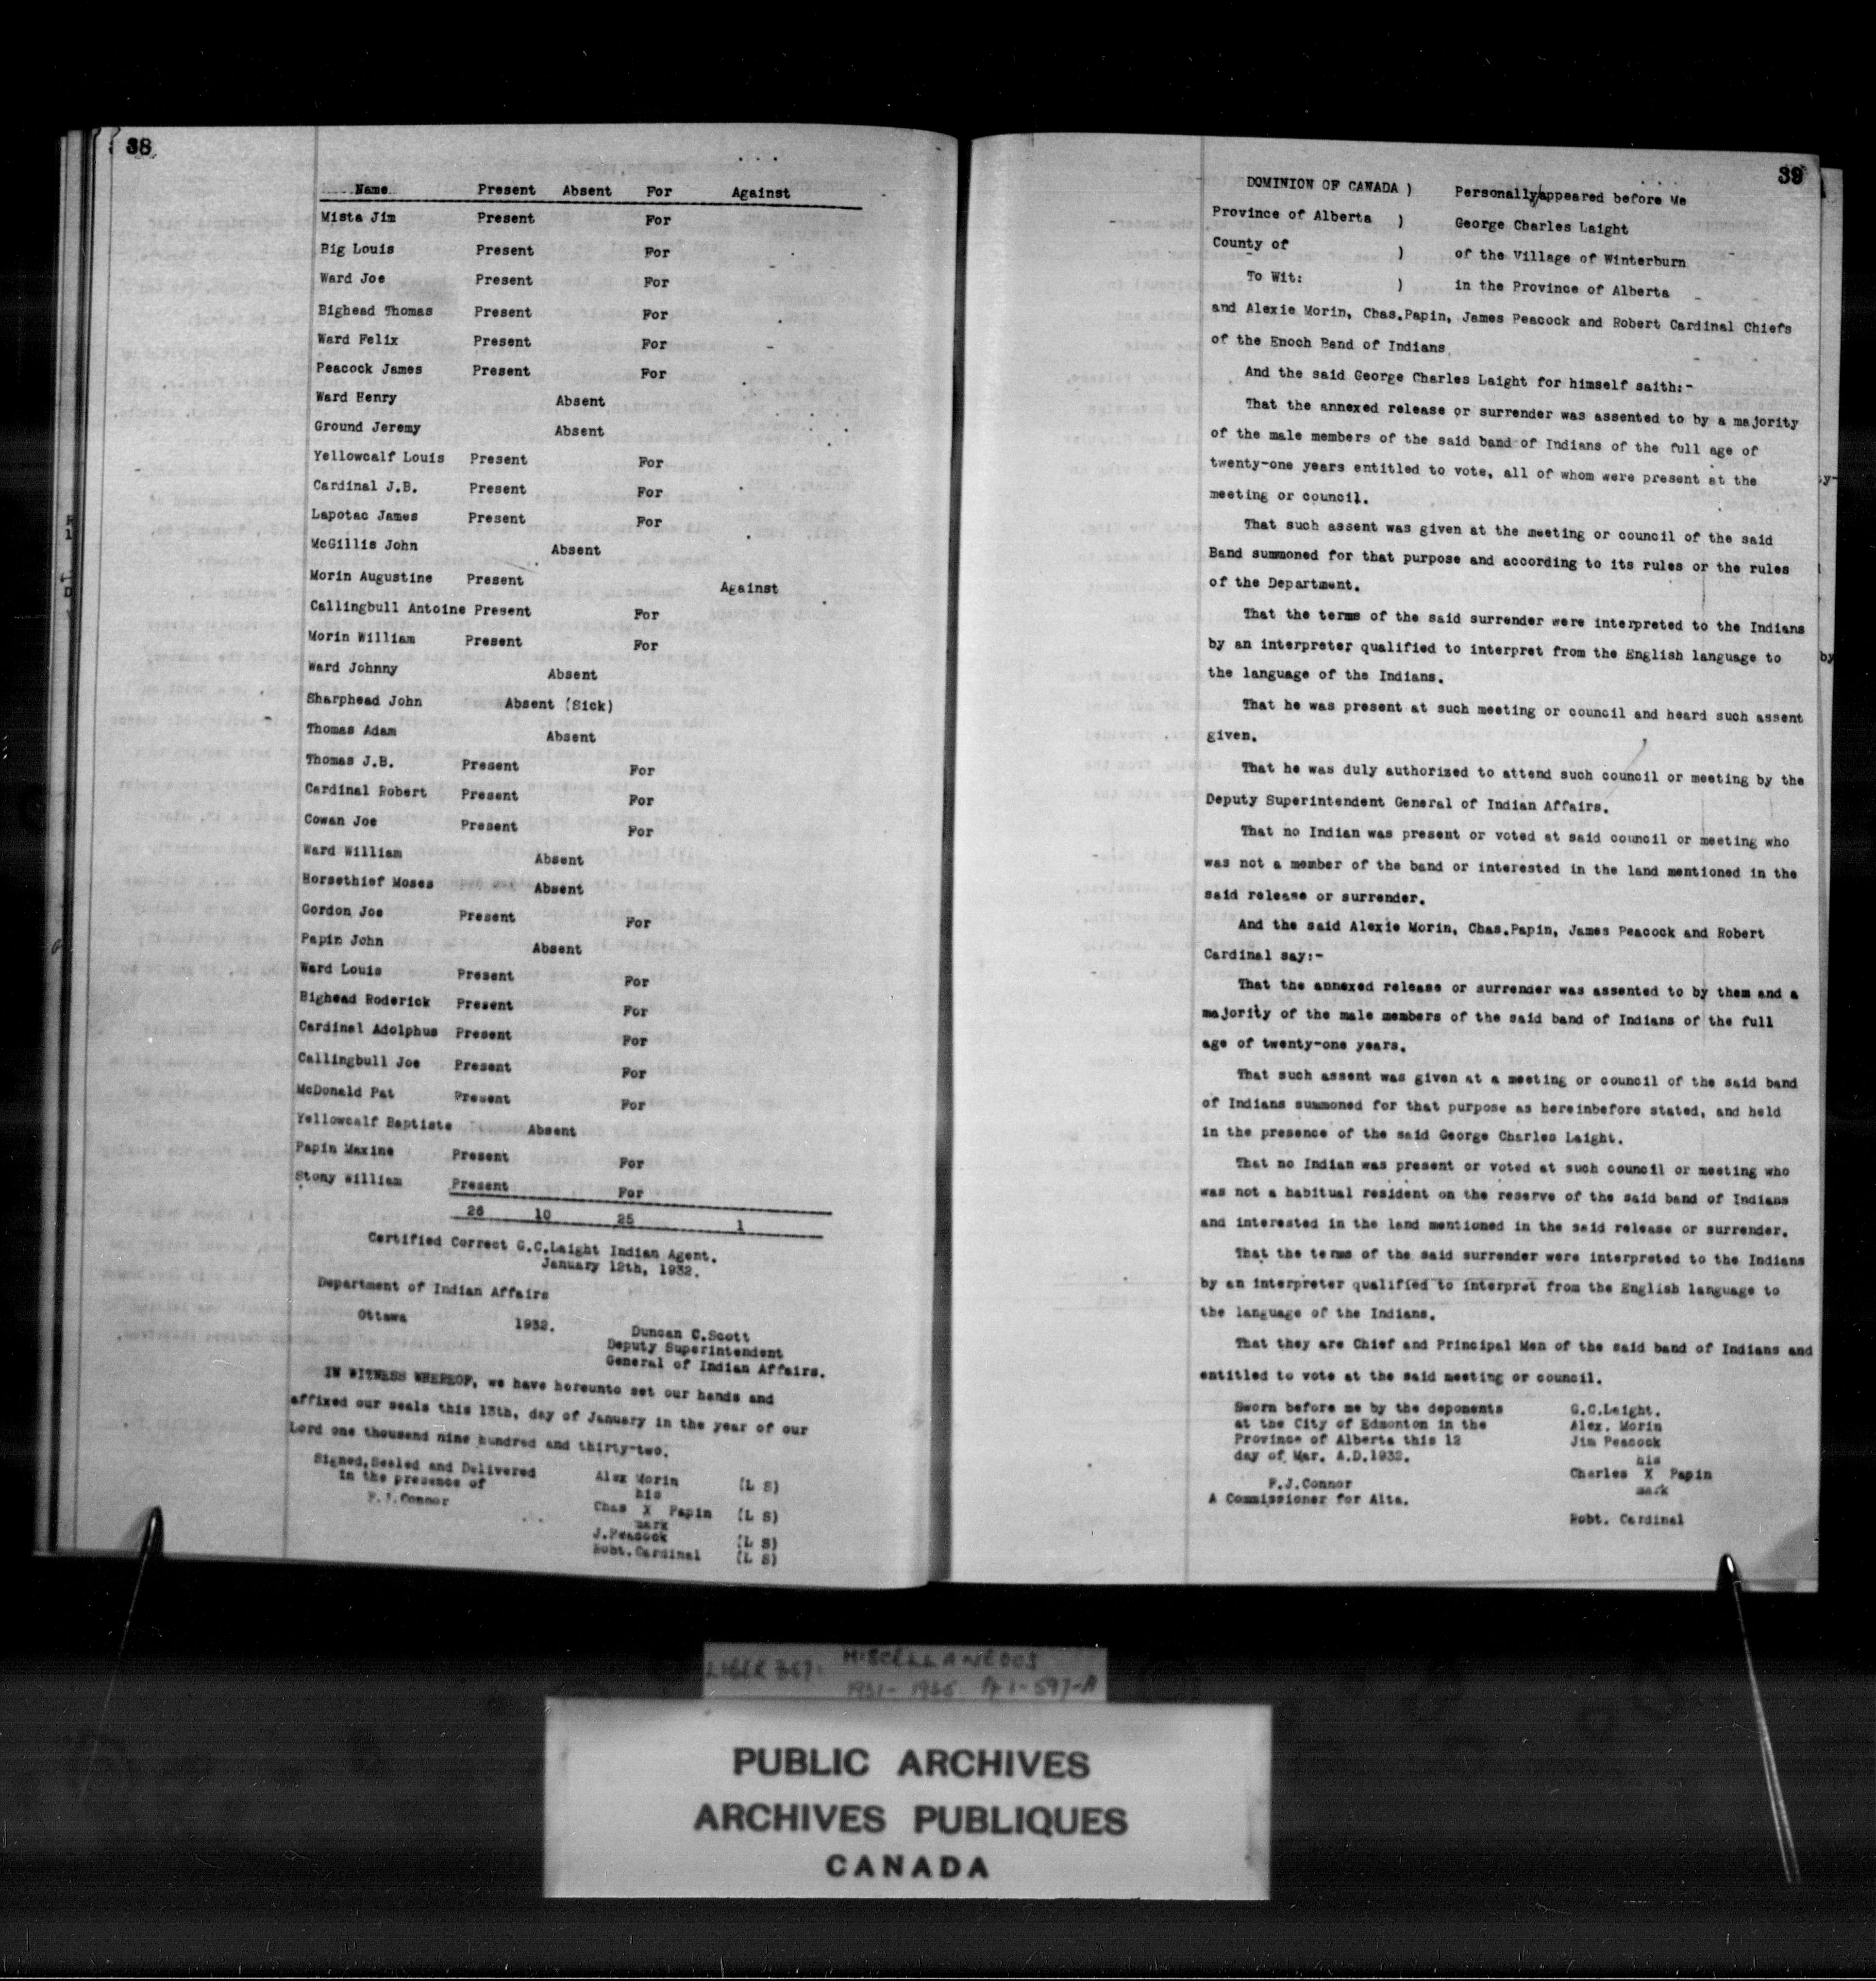 38
Name Present Absent For Against
Mista Jim Present For
Big Louis Present For
Ward Joe Present For
Bighead Thomas Present For
Ward Felix Present For
Peacock James Present For
Ward Henry Absent
Ground Jeremy Absent
Yellowcalf Louis Present For
Cardinal J.B. Present For
Lapotac James Present For
McGillis John Absent
Morin Augustine Present Against
Callingbull Antoine Present For
Morin William Present For
Ward Johnny Absent
Sharphead John Absent (Sick)
Thomas Adam Absent
Thomas J.B. Present For
Cardinal Robert Present For
Cowan Joe Present For
Ward William Absent
Horsethief Moses Absent
Gordon Joe Present For
Papin John Absent
Ward Louis Present For
Bighead Roderick Present For
Cardinal Adolphus Present For
Callingbull Joe Present For
McDonald Pat Present For
Yellowcalf Baptiste Absent
Papin Maxine Present For
Stony William Present For
26 10 25 1
Certified Correct G.C.Laight Indian Agent.
January 12th, 1932.
Department of Indian Affairs
Ottawa 1932.
Duncan C.Scott
Deputy Superintendent
General of Indian Affairs.
IN WITNESS WHEREOF, we have hereunto set our hands and
affixed our seals this 13th, day of January in the year of our
Lord one thousand nine hundred and thirty-two.
Signed,Sealed and Delivered
in the presence of
F.J.Connor
Alex Morin (L S)
his
Chas X Papin (L S)
mark
J.Peacock (L S)
Robt.Cardinal (L S)
39
DOMINION OF CANADA ) Personally/appeared before Me
Province of Alberta ) George Charles Laight
County of ) of the Village of Winterburn
To Wit: ) in the Province of Alberta
and Alexie Morin, Chas.Papin, James Peacock and Robert Cardinal Chiefs
of the Enoch Band of Indians
And the said George Charles Laight for himself saith:-
That the annexed release or surrender was assented to by a majority
of the male members of the said band of Indians of the full age of
twenty-one years entitled to vote, all of whom were present at the
meeting or council.
That such assent was given at the meeting or council of the said
Band summoned for that purpose and according to its rules or the rules
of the Department.
That the terms of the said surrender were interpreted to the Indians
by an interpreter qualified to interpret from the English language to
the language of the Indians.
That he was present at such meeting or council and heard such assent
given.
That he was duly authorized to attend such council or meeting by the
Deputy Superintendent General of Indian Affairs.
That no Indian was present or voted at said council or meeting who
was not a member of the band or interested in the land mentioned in the
said release or surrender.
And the said Alexie Morin, Chas.Papin, James Peacock and Robert
Cardinal say:-
That the annexed release or surrender was assented to by them and a
majority of the male members of the said band of Indians of the full
age of twenty-one years.
That such assent was given at a meeting or council of the said band
of Indians summoned for that purpose as hereinbefore stated, and held
in the presence of the said George Charles Laight.
That no Indian was present or voted at such council or meeting who
was not a habitual resident on the reserve of the said band of Indians
and interested in the land mentioned in the said release or surrender.
That the terms of the said surrender were interpreted to the Indians
by an interpreter qualified to interpret from the English language to
the language of the Indians.
That they are Chief and Principal Men of the said band of Indians and
entitled to vote at the said meeting or council.
Sworn before me by the deponents
at the City of Edmonton in the
Province of Alberta this 12
day of Mar. A.D.1932.
F.J.Connor
A Commissioner for Alta.
G.C.Laight.
Alex. Morin
Jim Peacock
his
Charles X Papin
mark
Robt. Cardinal
LIBER 367: MISCELLANEOUS
1931-1935 Pp 1-597-A
PUBLIC ARCHIVES
ARCHIVES PUBLIQUES
CANADA